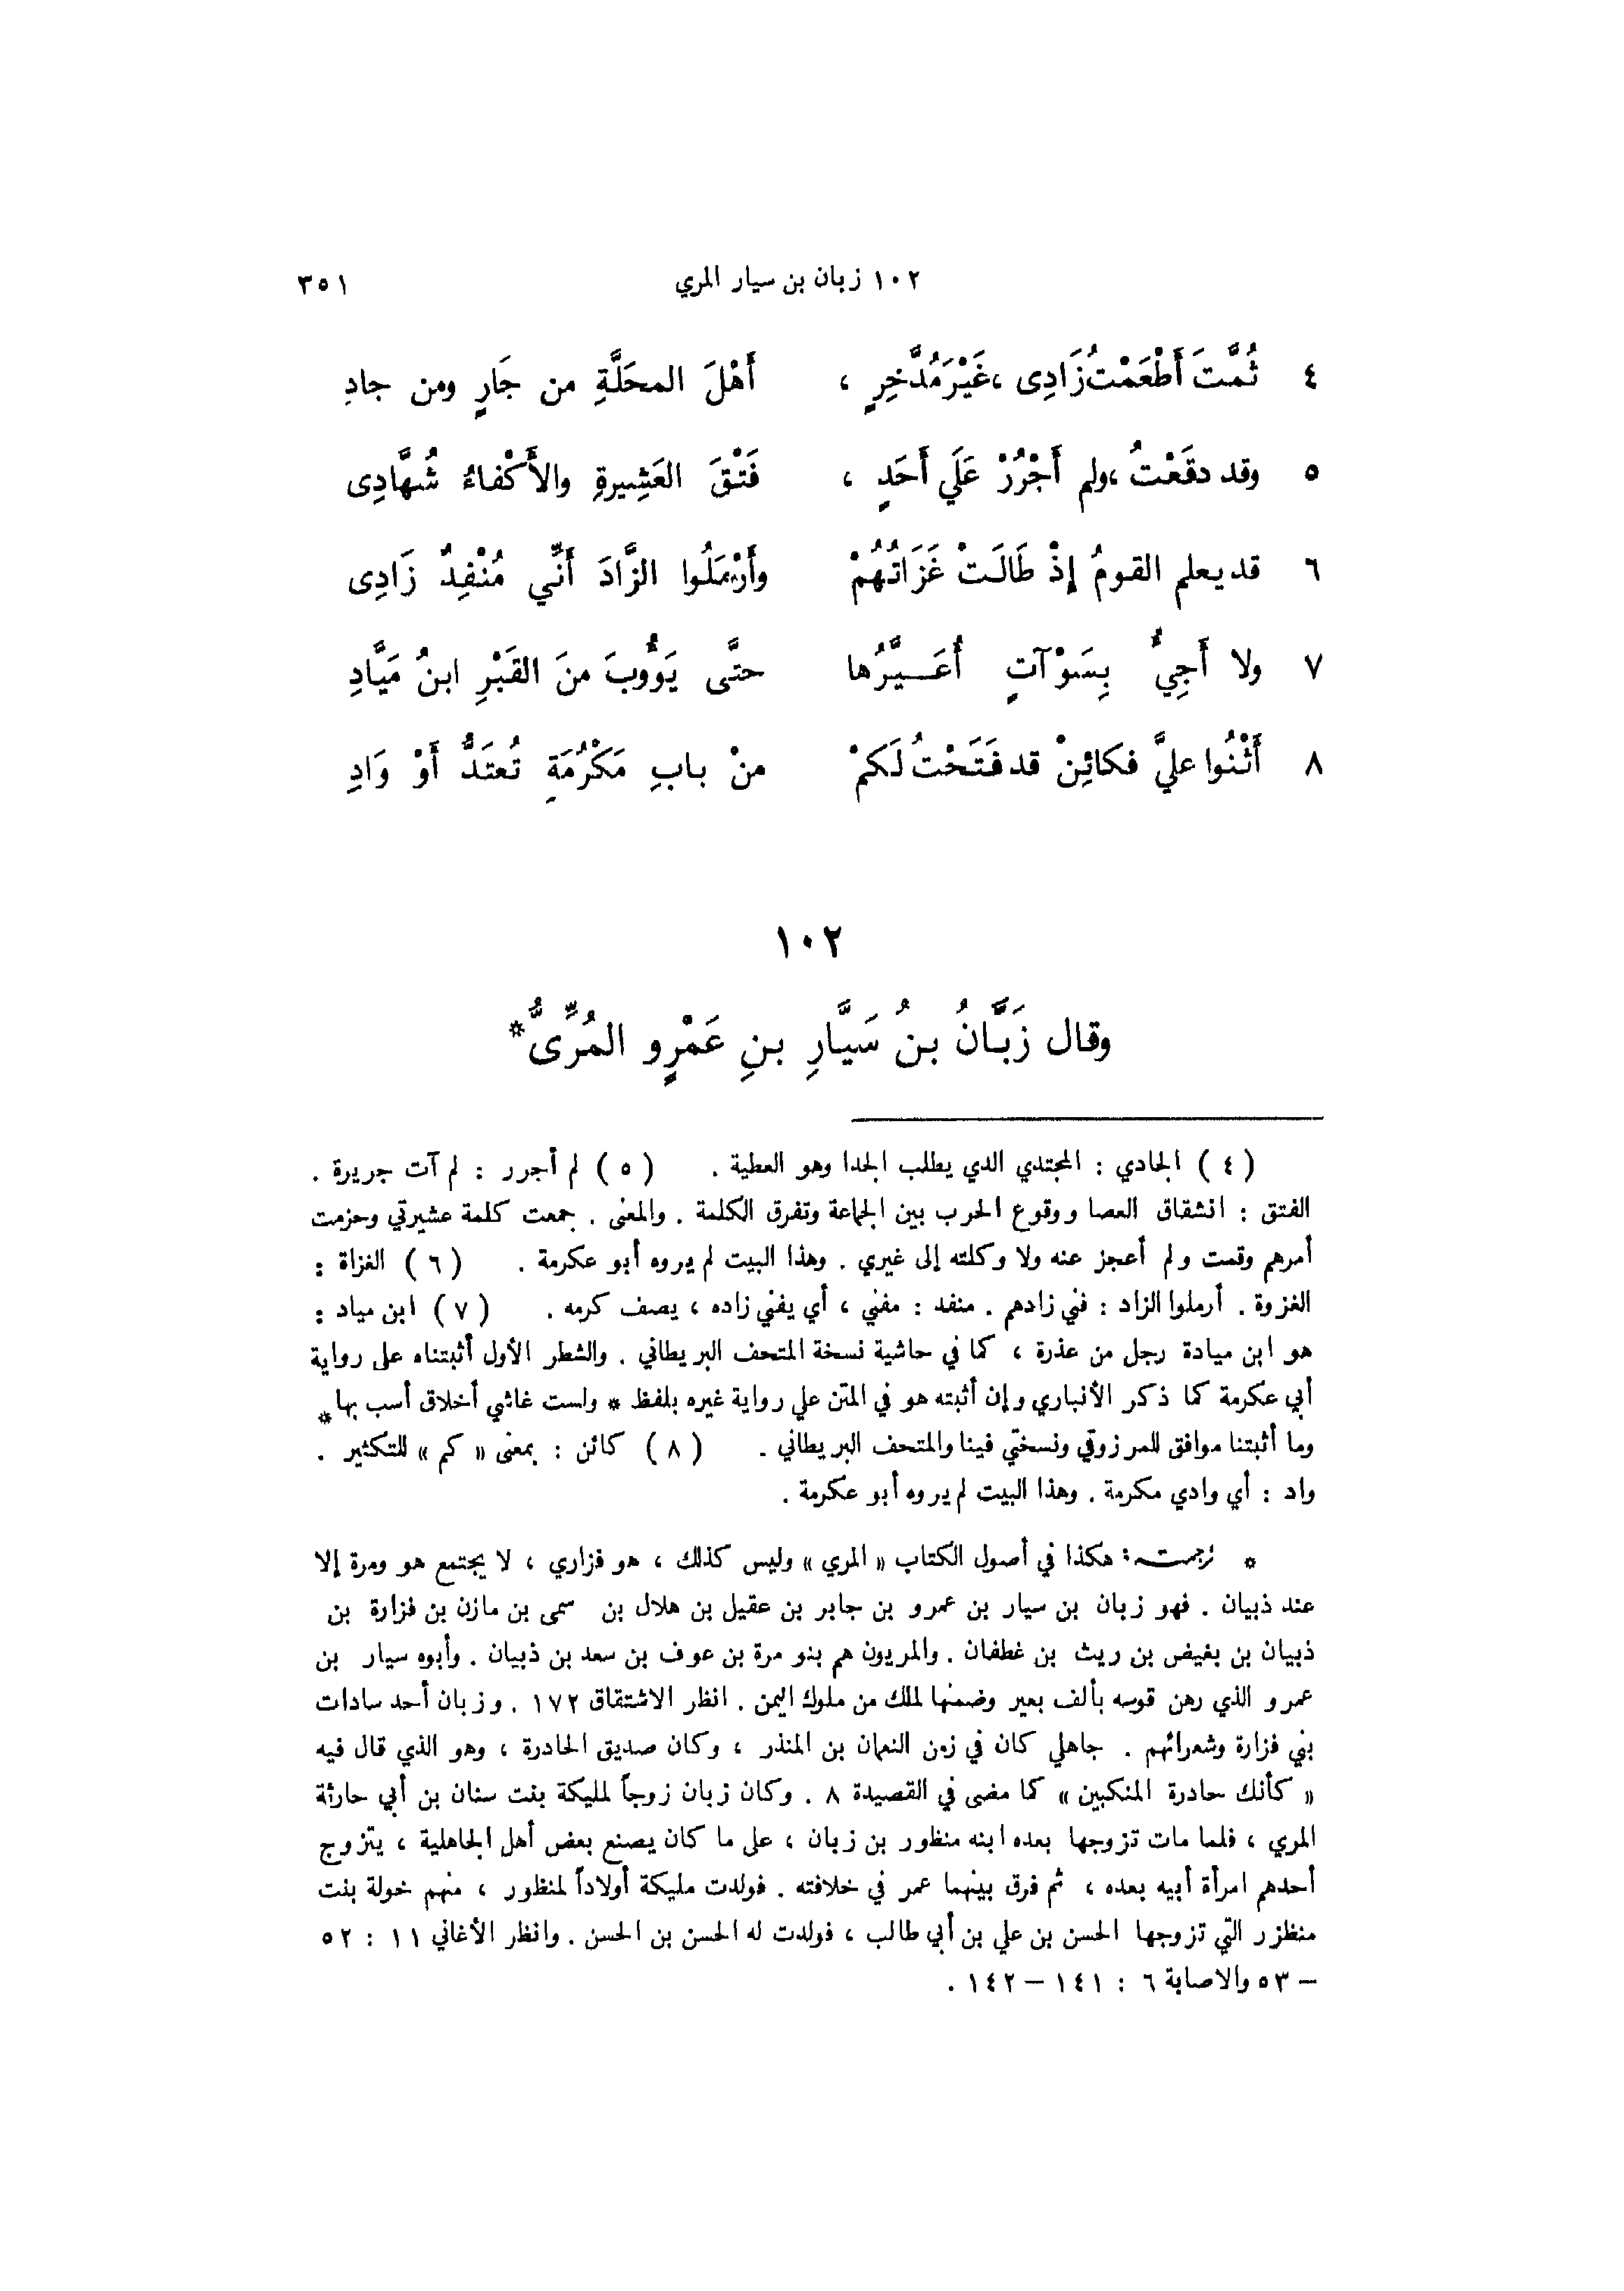 ١٠٢ زبان بن سيار المري ٣٥١
٤ ثُمَّتَ أَطْعَمْتُ زَادِى ، غَيْرَ مُدَّخِرٍ ، أَهْلَ المحَلَّةِ من جَارٍ ومن جادِ
٥ وقد دفَعْتُ ، ولم أَجْرُرْ عَلَي أَحَدٍ ، فَتْقَ العَشِيرةِ والأَكْفاءُ شُهَّادِى
٦ قد يعلم القومُ إِذْ طَالَتْ غَزَاتُهُمْ وأَرْمَلُوا الزَّادَ أَنِّي مُنْفِدٌ زَادِى
٧ ولا أَجِيءُ بِسَوْآتٍ أُعَيَّرُها حتَّى يَؤُوبَ منَ القَبْرِ ابنُ مَيَّادِ
٨ أَثْنُوا عليَّ فكائِنْ قد فَتَحْتُ لَكمْ منْ بابِ مَكْرُمَةٍ تُعتَدُّ أَوْ وَادِ
١٠٢
وقال زَبَّانُ بنُ سَيَّارِ بنِ عَمْرٍو المُرِّىُّ*
( ٤ ) الجادي : المجتدي الذي يطلب الجدا وهو العطية . ( ٥ ) لم أجرر : لم آت جريرة .
الفتق : انشقاق العصا ووقوع الحرب بين الجماعة وتفرق الكلمة . والمعنى . جمعت كلمة عشيرتي وحزمت
أمرهم وقمت ولم أعجز عنه ولا وكلته إلى غيري . وهذا البيت لم يروه أبو عكرمة . ( ٦ ) الغزاة :
الغزوة . أرملوا الزاد : فني زادهم . منفد : مفني ، أي يفني زاده ، يصف كرمه . ( ٧ ) ابن مياد :
هو ابن ميادة رجل من عذرة ، كما في حاشية نسخة المتحف البريطاني . والشطر الأول أثبتناه على رواية
أبي عكرمة كما ذكر الأنباري وإن أثبته هو في المتن علي رواية غيره بلفظ * ولست غاشي أخلاق أسب بها *
وما أثبتنا موافق للمرزوقي ونسختي فينا والمتحف البريطاني . ( ٨ ) كائن : بمعنى « كم » للتكثير .
واد : أي وادي مكرمة . وهذا البيت لم يروه أبو عكرمة .
* ترجمته : هكذا في أصول الكتاب « المري » وليس كذلك ، هو فزاري ، لا يجتمع هو ومرة إلا
عند ذبيان . فهو زبان بن سيار بن عمرو بن جابر بن عقيل بن هلال بن سمى بن مازن بن فزارة بن
ذبيان بن بغيض بن ريث بن غطفان . والمريون هم بنو مرة بن عوف بن سعد بن ذبيان . وأبوه سيار بن
عمرو الذي رهن قوسه بألف بعير وضمنها لملك من ملوك اليمن . انظر الاشتقاق ١٧٢ . وزبان أحد سادات
بني فزارة وشعرائهم . جاهلي كان في زمن النعمان بن المنذر ، وكان صديق الحادرة ، وهو الذي قال فيه
« كأنك حادرة المنكبين » كما مضى في القصيدة ٨ . وكان زبان زوجاً لمليكة بنت سنان بن أبي حارثة
المري ، فلما مات تزوجها بعده ابنه منظور بن زبان ، على ما كان يصنع بعض أهل الجاهلية ، يتزوج
أحدهم امرأة أبيه بعده ، ثم فرق بينهما عمر في خلافته . فولدت مليكة أولاداً لمنظور ، منهم خولة بنت
منظزر التي تزوجها الحسن بن علي بن أبي طالب ، فولدت له الحسن بن الحسن . وانظر الأغاني ١١ : ٥٢
– ٥٣ والاصابة ٦ : ١٤١ – ١٤٢ .